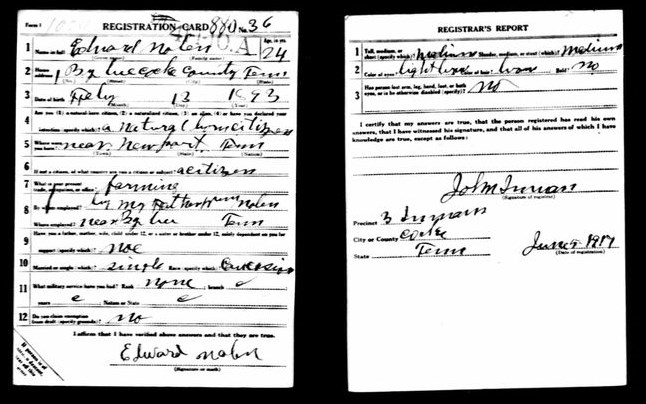 Form 1
REGISTRATION CARD 880 No. 36
1 Name in full Edward Nolen Age, in yrs. 24
2 Home address By Cocke County Tenn
3 Date of birth Feby 13 1893
Are you (1) a natural-born citizen, (2) a naturalized citizen, (3) an alien, (4) or have you declared your
4 intention (specify which)? a natural born citizen
5 Where were you born? near Newport Tenn
6 If not a citizen, of what country are you a citizen or subject? a citizen
7 What is your present trade, occupation, or office? farming
8 By whom employed? by my father Nolen
Where employed? near Tenn
Have you a father, mother, wife, child under 12, or a sister or brother under 12, solely dependent on you for
9 support (specify which)?
10 Married or single (which)? single Race (specify which)? Caucasian
11 What military service have you had? Rank none ; branch
years Nation or State
12 Do you claim exemption from draft (specify grounds)? No
I affirm that I have verified above answers and that they are true.
Edward Nolen
(Signature or mark)
REGISTRAR'S REPORT
1 Tall, medium, or short (specify which)? medium Slender, medium, or stout (which)? medium
2 Color of eyes? light Color of hair? Bald? No
3 Has person lost arm, leg, hand, foot, or both eyes, or is he otherwise disabled (specify)? No
I certify that my answers are true, that the person registered has read his own
answers, that I have witnessed his signature, and that all of his answers of which I have
knowledge are true, except as follows:
John Inman
(Signature of registrar)
Precinct 3 Inmans
City or County Cocke
State Tenn June 5 1917
(Date of registration)